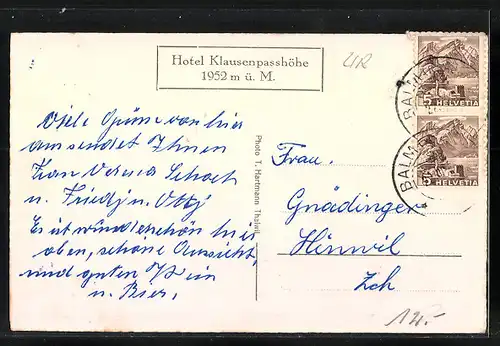 Hotel Klausenpasshöhe
1952 m ü. M.
UR
Viele Grüsse von hier
aussendet Ihnen
Frau Verena Schoch
u. Friedj u. Otty
Es ist wunderschön hier
oben, schöne Aussicht,
und guten Wein
u. Bier.
Photo T. Hartmann Thalwil
5 HELVETIA
5 HELVETIA
BALM
BALM
Frau.
Gnädinger
Hinwil
Zch
12.-